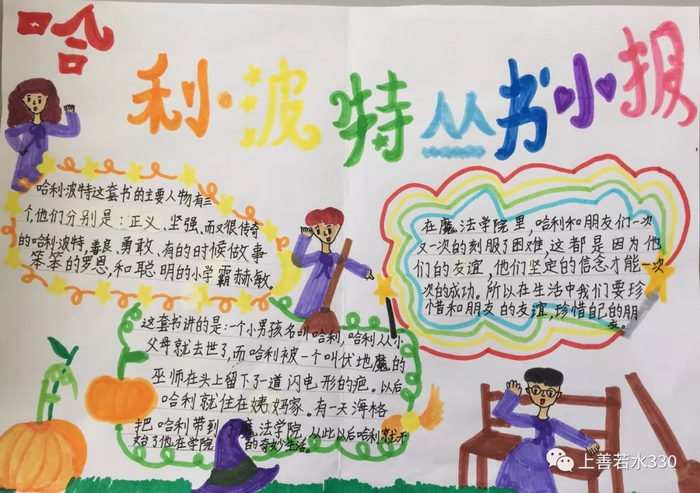 哈利·波特丛书小报
哈利·波特这套书的主要人物有三
个,他们分别是:正义、坚强、而又很传奇
的哈利波特,善良、勇敢、有的时候做事
笨笨的罗恩,和聪明的小学霸赫敏。
在魔法学院里,哈利和朋友们一次
又一次的刻服了困难这都是因为他
们的友谊,他们坚定的信念才能一次
次的成功。所以在生活中我们要珍
惜和朋友的友谊,珍惜自己的朋
友。
这套书讲的是:一个小男孩名叫哈利,哈利从小
父母就去世了,而哈利被一个叫伏地魔的
巫师在头上留下了一道闪电形的疤。以后
哈利就住在姨妈家。有一天海格
把哈利带到魔法学院,从此以后哈利就开
始了他在学院的奇妙生活。
上善若水330